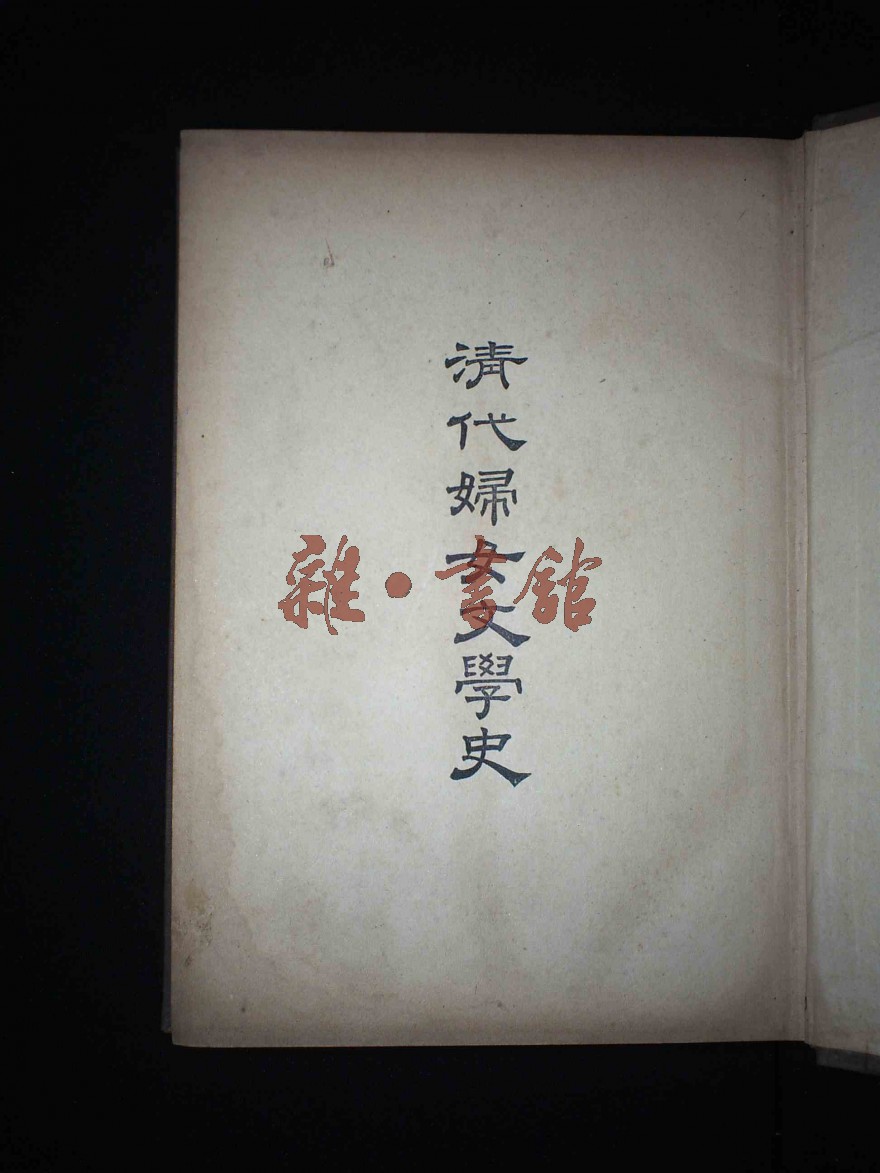 清代婦女文學史
雜·書館